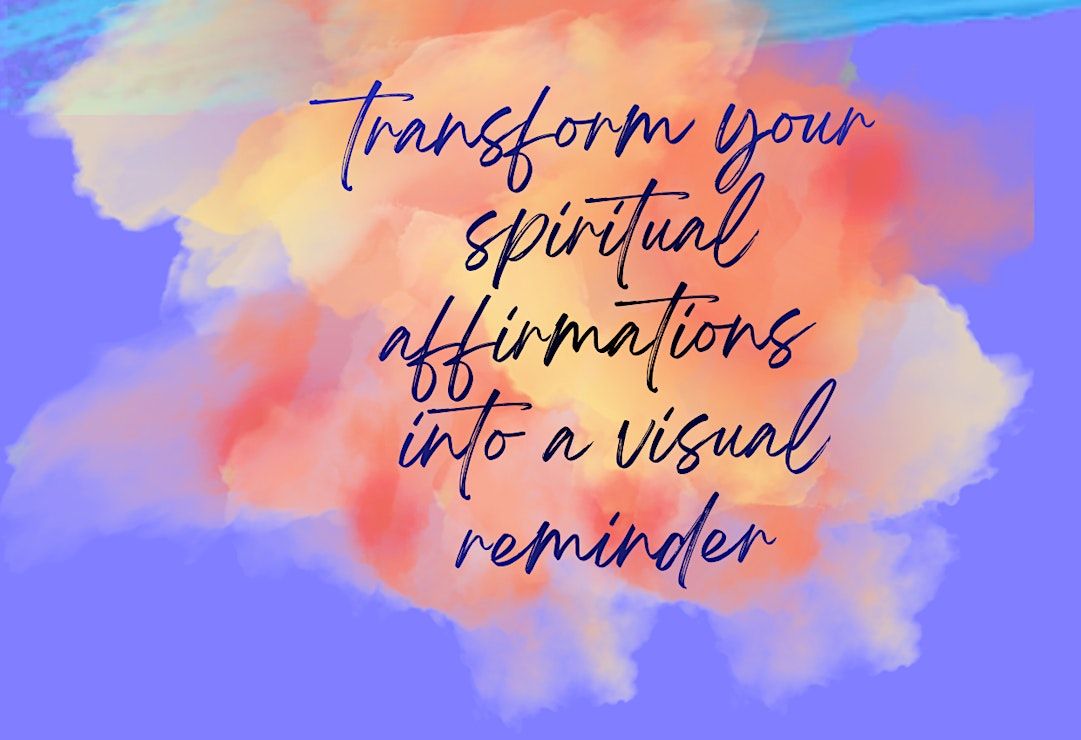 Transform your
spiritual
affirmations
into a visual
reminder